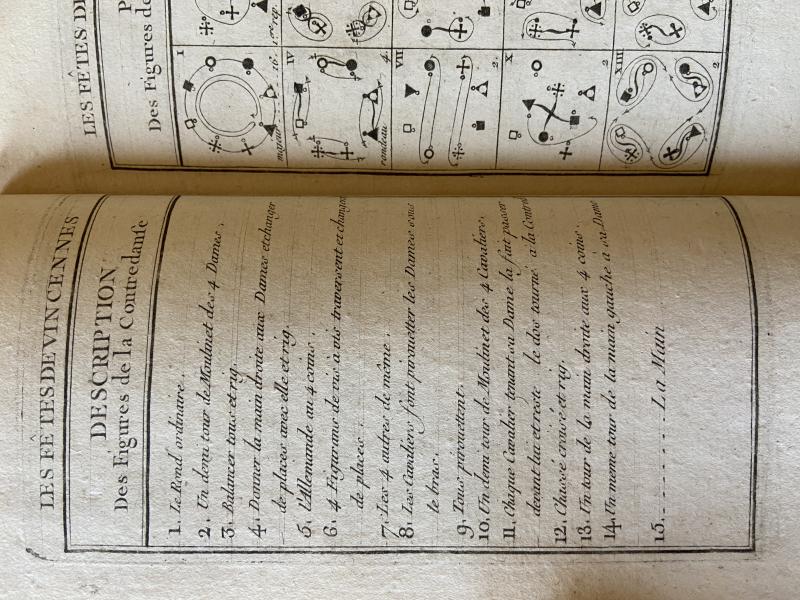 LES FÊTES DE VINCENNES
DESCRIPTION
Des Figures de la Contredanse
1. Le Rond ordinaire.
2. Un demi tour de Moulinet des 4 Dames.
3. Balancer tous et rig.
4. Donner la main droite aux Dames et changer
de places avec elle et rig.
5. L'Allemande au 4 coins.
6. 4 Figurans de vis a vis traversent et changent
de places.
7. Les 4 autres de même.
8. Les Cavaliers font pirouetter les Dames sous
le bras.
9. Tous pirouettent.
10. Un demi tour de Moulinet des 4 Cavaliers.
11. Chaque Cavalier tenant sa Dame la fait passer
devant lui et reste le dos tourné à la Contred
12. Chassé croisé et rig.
13. Un tour de la main droite aux 4 coins.
14. Un meme tour de la main gauche à sa Dame
15. - - - - - - - - La Main
LES FÊTES DE
Des Figures de
I
16.
1er rig.
IV
4.
rondeau
VII
2.
X
2
XIII
2